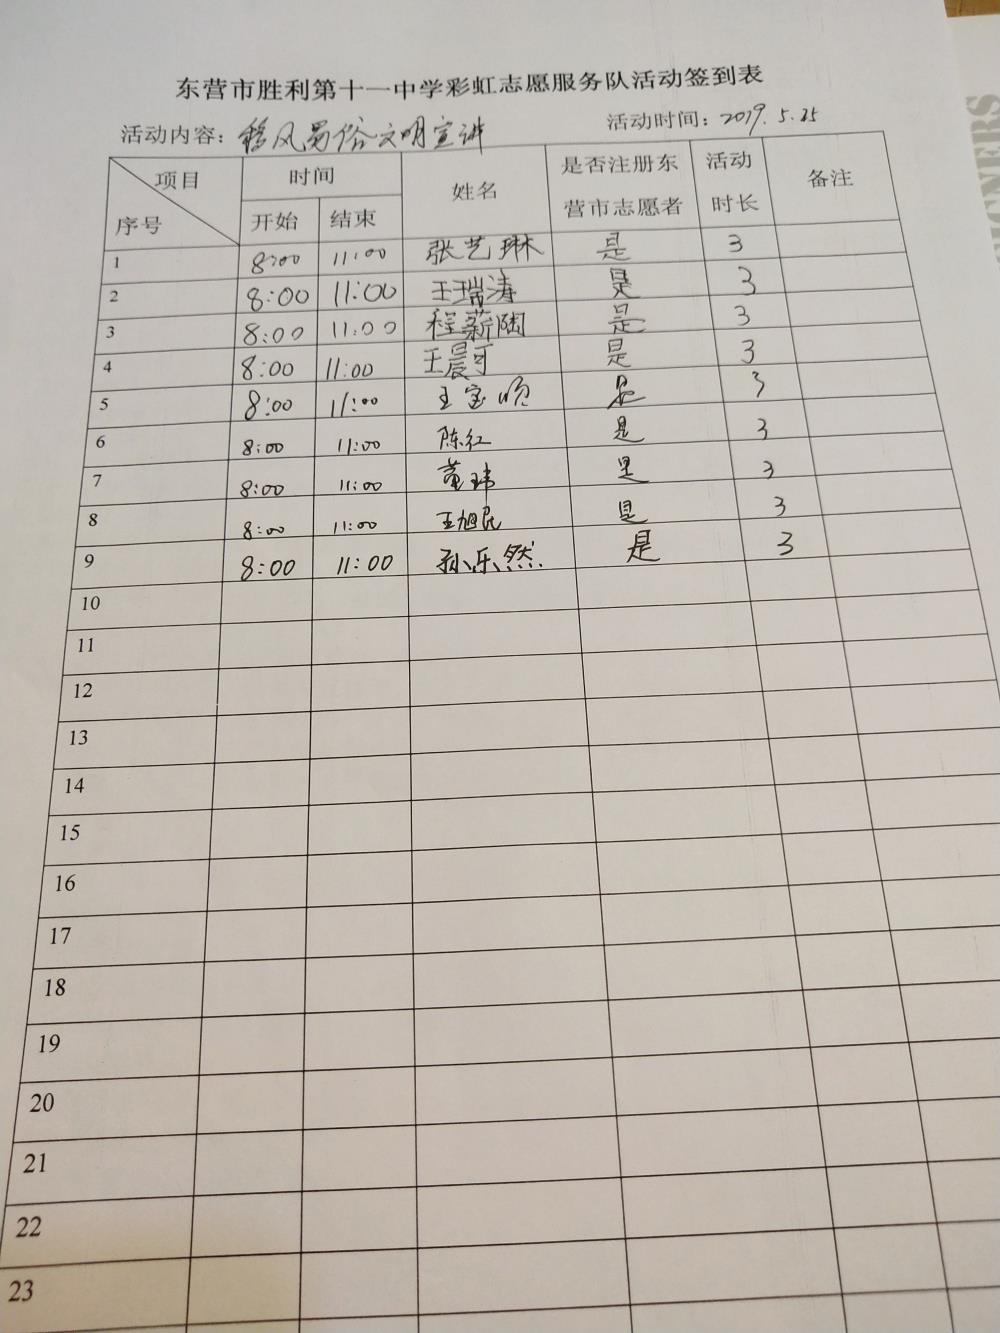 东营市胜利第十一中学彩虹志愿服务队活动签到表
活动内容：移风易俗文明宣讲 活动时间：2019.5.25
项目 时间 姓名 是否注册东营市志愿者 活动时长 备注
序号 开始 结束
1 8:00 11:00 张艺琳 是 3
2 8:00 11:00 王瑞涛 是 3
3 8:00 11:00 程薪陶 是 3
4 8:00 11:00 王晨可 是 3
5 8:00 11:00 王宝 是 3
6 8:00 11:00 陈红 是 3
7 8:00 11:00 董玮 是 3
8 8:00 11:00 王旭民 是 3
9 8:00 11:00 孙乐然 是 3
10
11
12
13
14
15
16
17
18
19
20
21
22
23